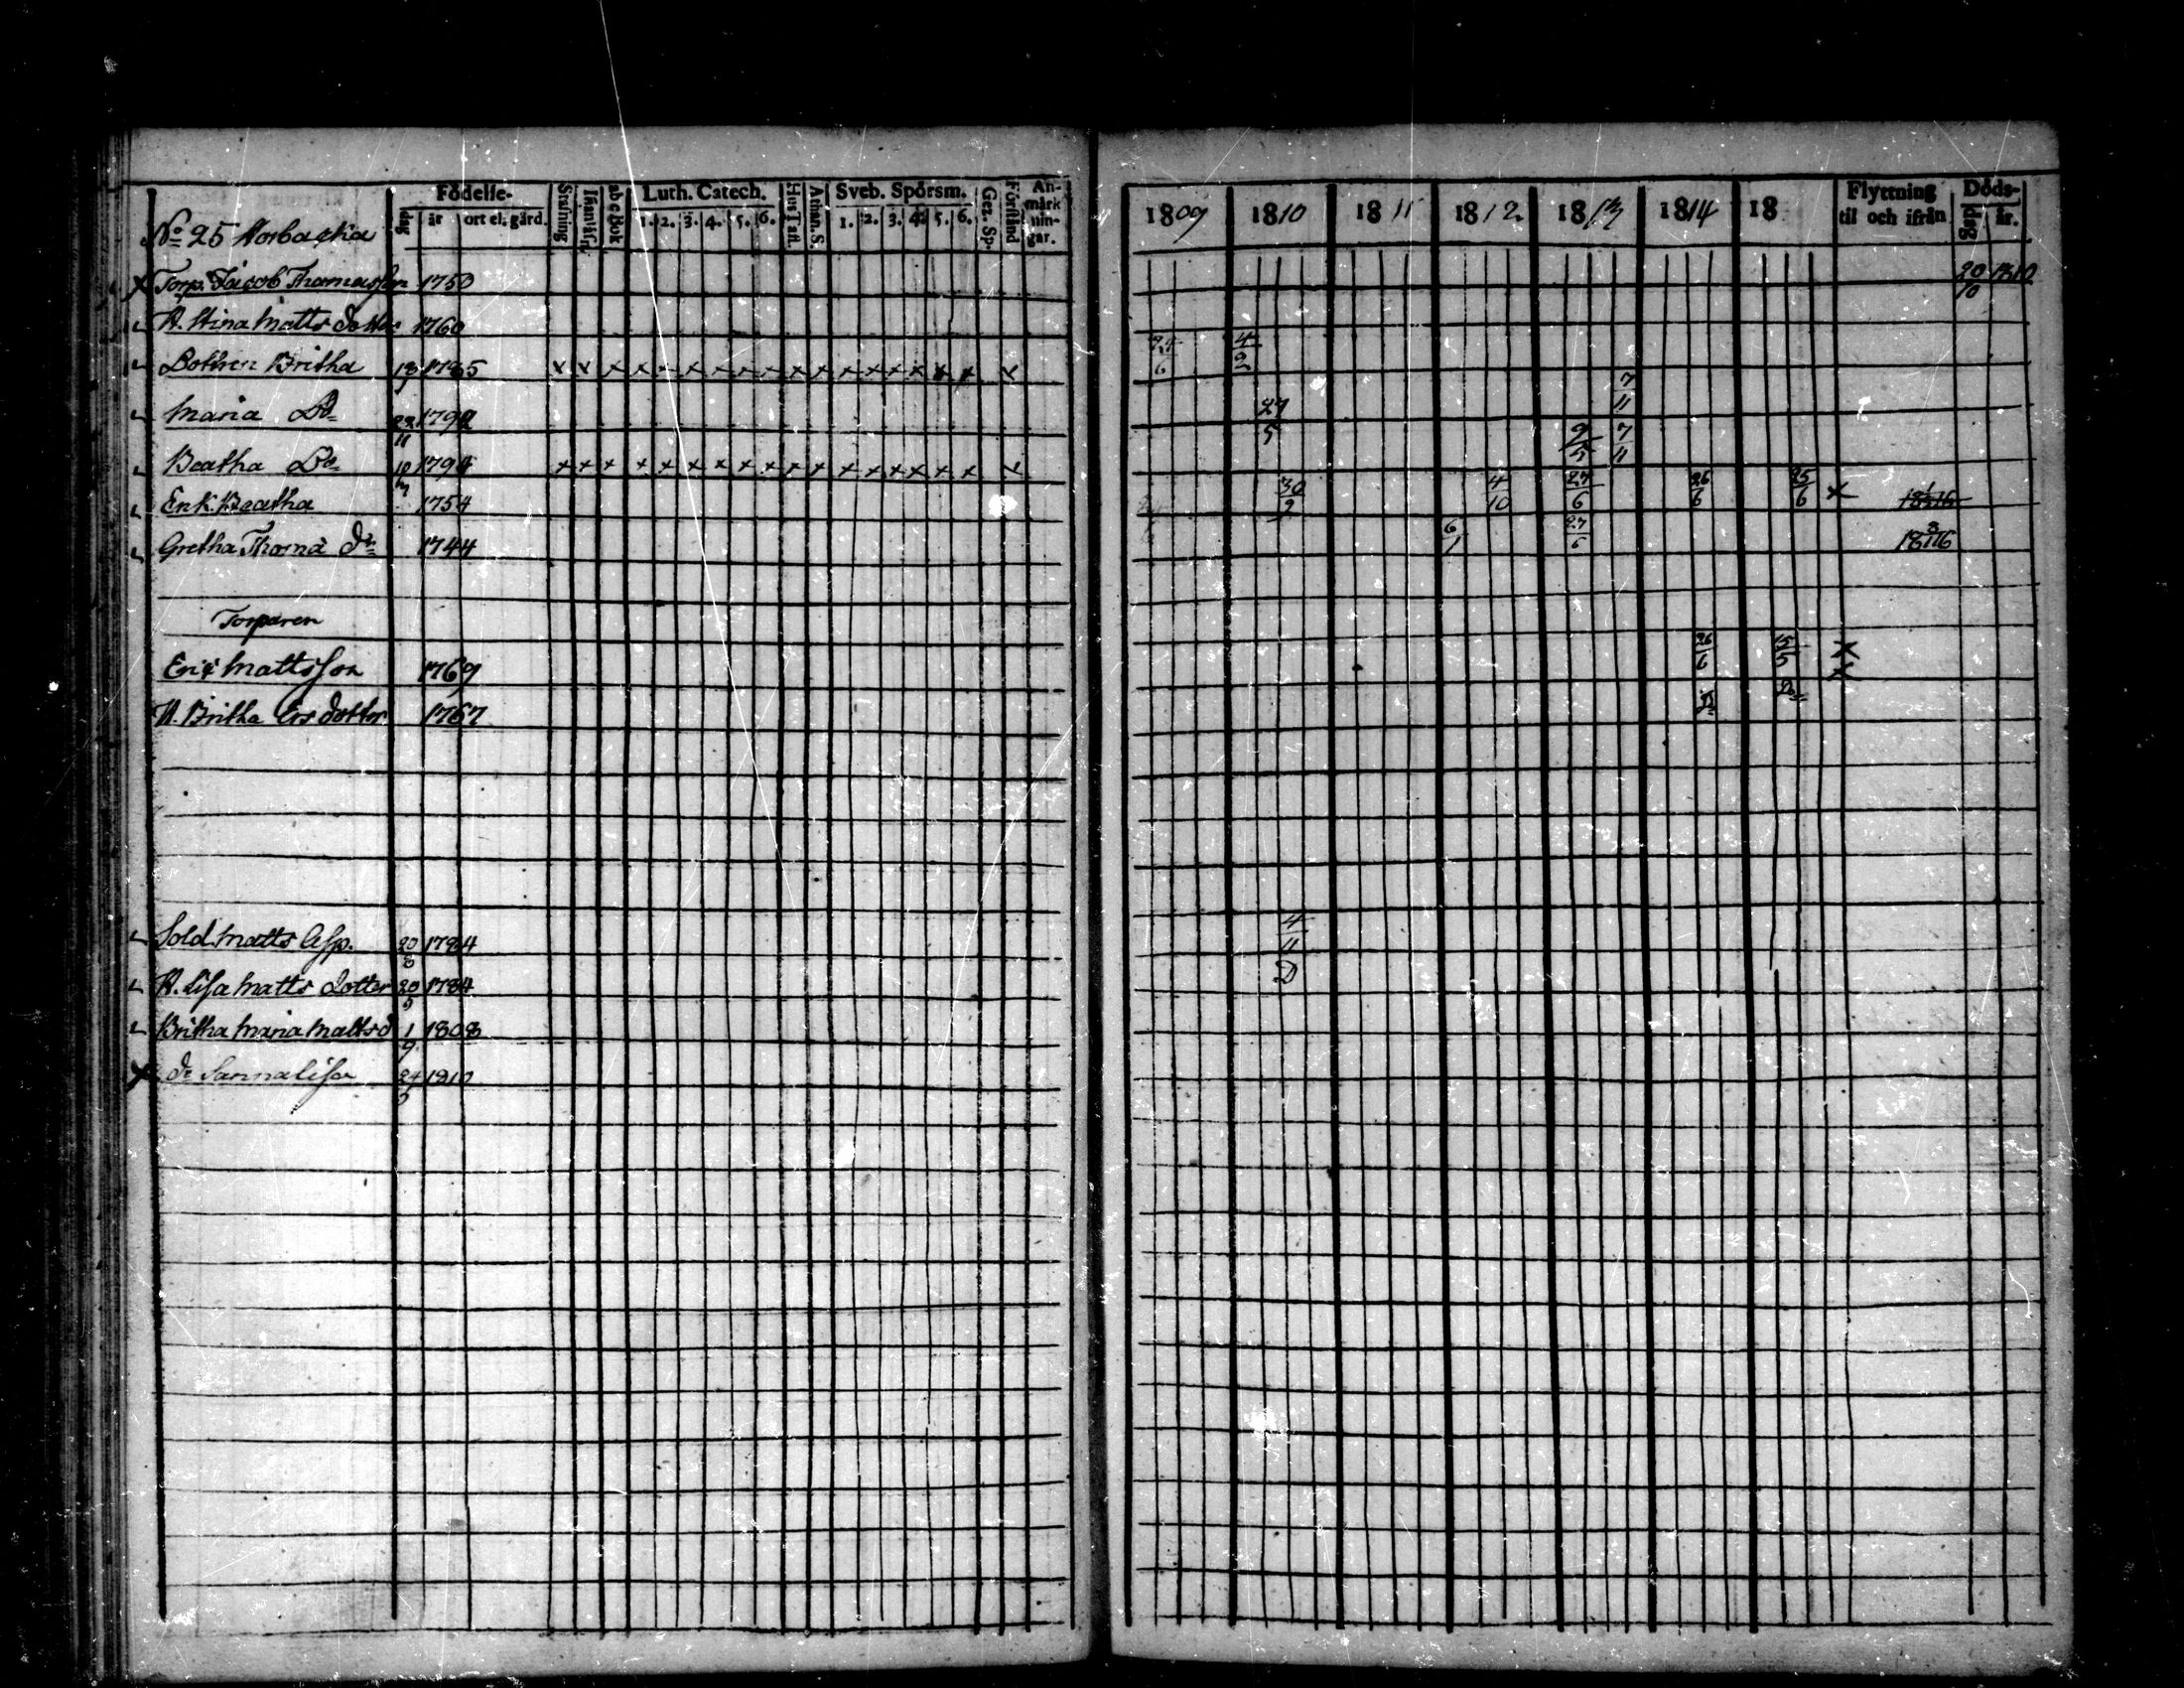 Födelse- Luth. Catech. Sveb. Spörsm. An-märk-nin-gar.
dag år ort el. gård. Stafning Innanläsn. abc Bok 1. 2. 3. 4. 5. 6. Hus Tafl. Athan. S. 1. 2. 3. 4. 5. 6. Gez. Sp. Förstånd
1809 1810 1811 1812 1813 1814 18 Flyttning til och ifrån Döds- dag år.
No 25
Torp. Jacob Thomasson 1750 20/10 1810
H. Stina Matts dotter 1760
Dottren Britha 1785 x x x x x x x x x x x x x x x x x x 4/2
Maria Do 22/11 27/5 7/11
Beatha Do x x x x x x x x x x x x x x x x x x 9/5 7/11
Enk. Beatha 1754 30/9 4/10 27/6 26/6 25/6 x
Gretha Thoma dr 1744 6/1 27/6
Torparen
Eric Mattsson 1769 26/6 15/5 x
H. Britha Ers dotter 1767 Do Do x
Sold. Matts Asp. 20/8 1784 4/11
H. Lisa Matts dotter 20/5 1784 D
Britha Maria Matts d 1/9 1808
Do Sannalisa 24/5 1810